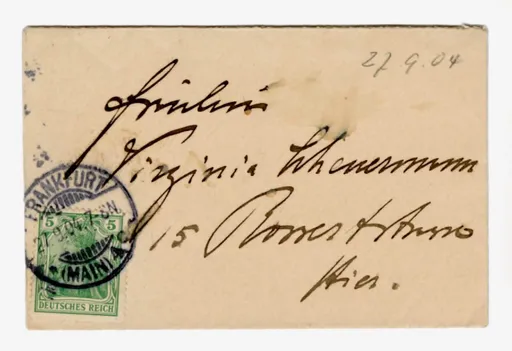 27 9.04
Fräulein
Virginia Scheuermann
15
Hier.
FRANKFURT
27.9.04. 7-8N
* (MAIN) *
5 5
DEUTSCHES REICH